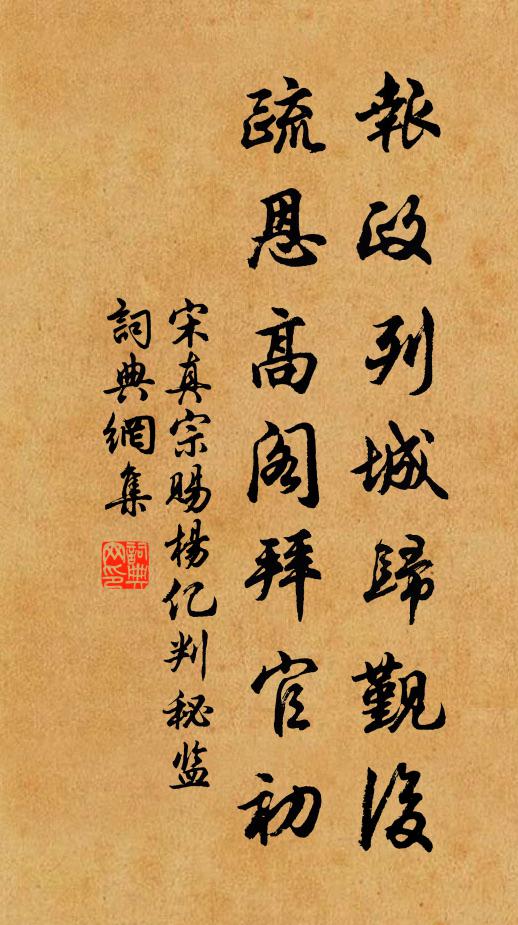 報政列城歸覲後
疏恩高閣拜官初
宋真宗賜楊億判秘監
詞典網集
詞典網印